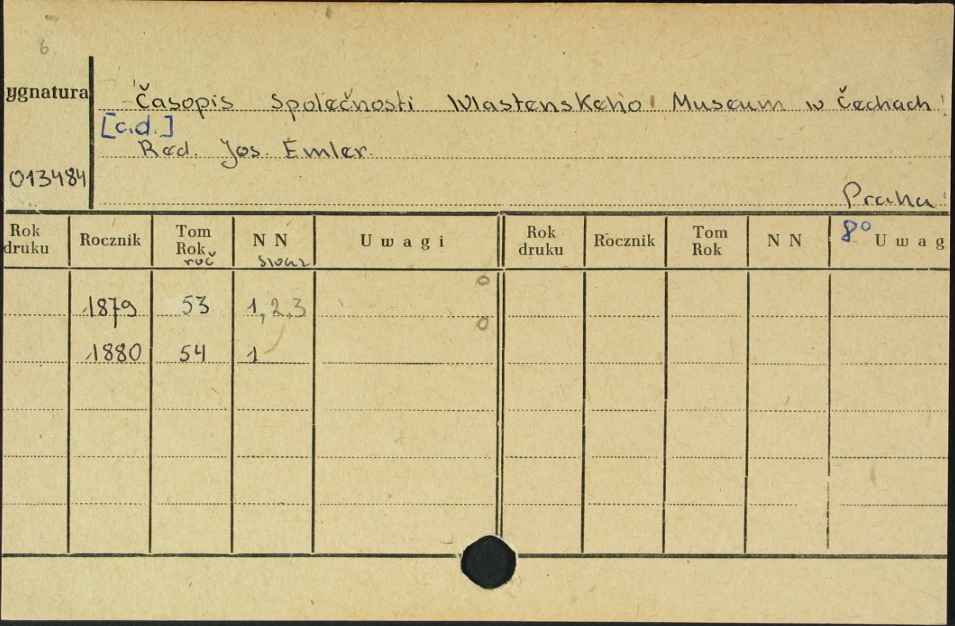 6
ygnatura
Časopis Společnosti Wlastenskeho Museum w Čechach
[c.d.]
Red. Jos. Emler.
013484
Praha
Rok druku Rocznik Tom Rok roč N N svaz Uwagi Rok druku Rocznik Tom Rok N N 8° Uwag
1879 53 1,2,3
1880 54 1